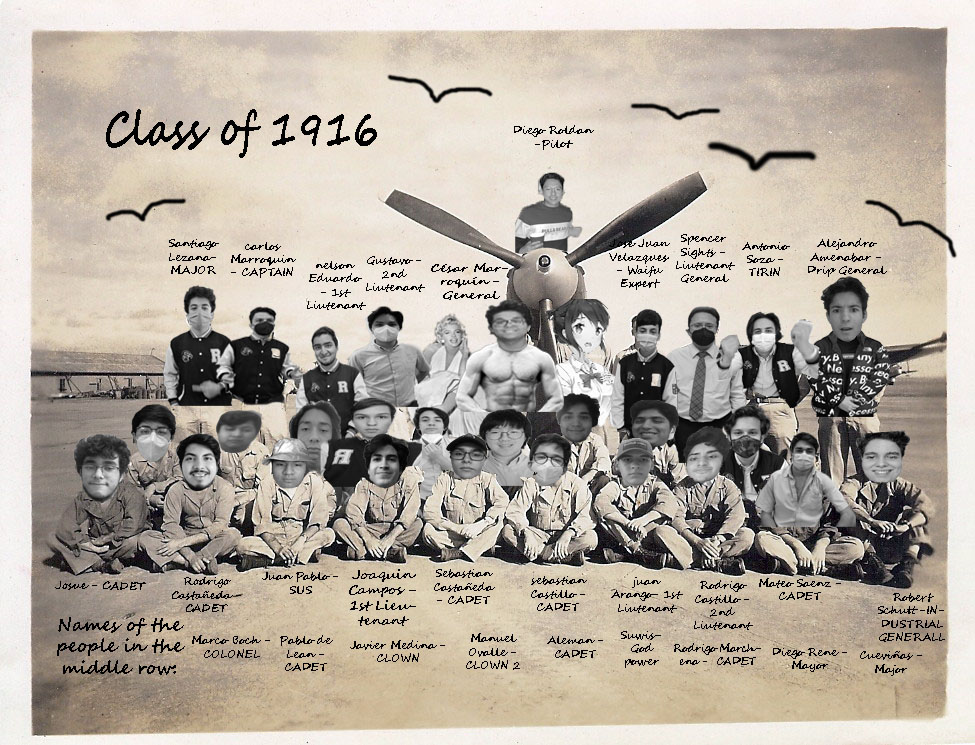 Class of 1916
Diego Roldan
-Pilot
Santiago
Lezana-
MAJOR
carlos
Marroquin
- CAPTAIN
nelson
Eduardo
- 1st
Liutenant
Gustavo-
2nd
Liutenant
César Mar-
roquin-
General
Jose Juan
Velazques
- Waifu
Expert
Spencer
Sights -
Liutenant
General
Antonio
Soza -
TIRIN
Alejandro
Amenabar -
Drip General
R
R
R
R
Josue - CADET
Rodrigo
Castañeda-
CADET
Juan Pablo-
SUS
Joaquin
Campos -
1st Lieu-
tenant
Sebastian
Castañeda
- CADET
sebastian
Castillo-
CADET
juan
Arango- 1st
Liutenant
Rodrigo
Castillo-
2nd
Liutenant
Mateo Saenz -
CADET
Robert
Schutt-IN-
DUSTRIAL
GENERALL
Names of the
people in the
middle row:
Marco Boch -
COLONEL
Pablo de
Lean -
CADET
Javier Medina-
CLOWN
Manuel
Ovalle-
CLOWN 2
Aleman-
CADET
Suwis-
God
power
Rodrigo March-
ena- CADET
Diego Rene-
Mayor
Cueviñas -
Major